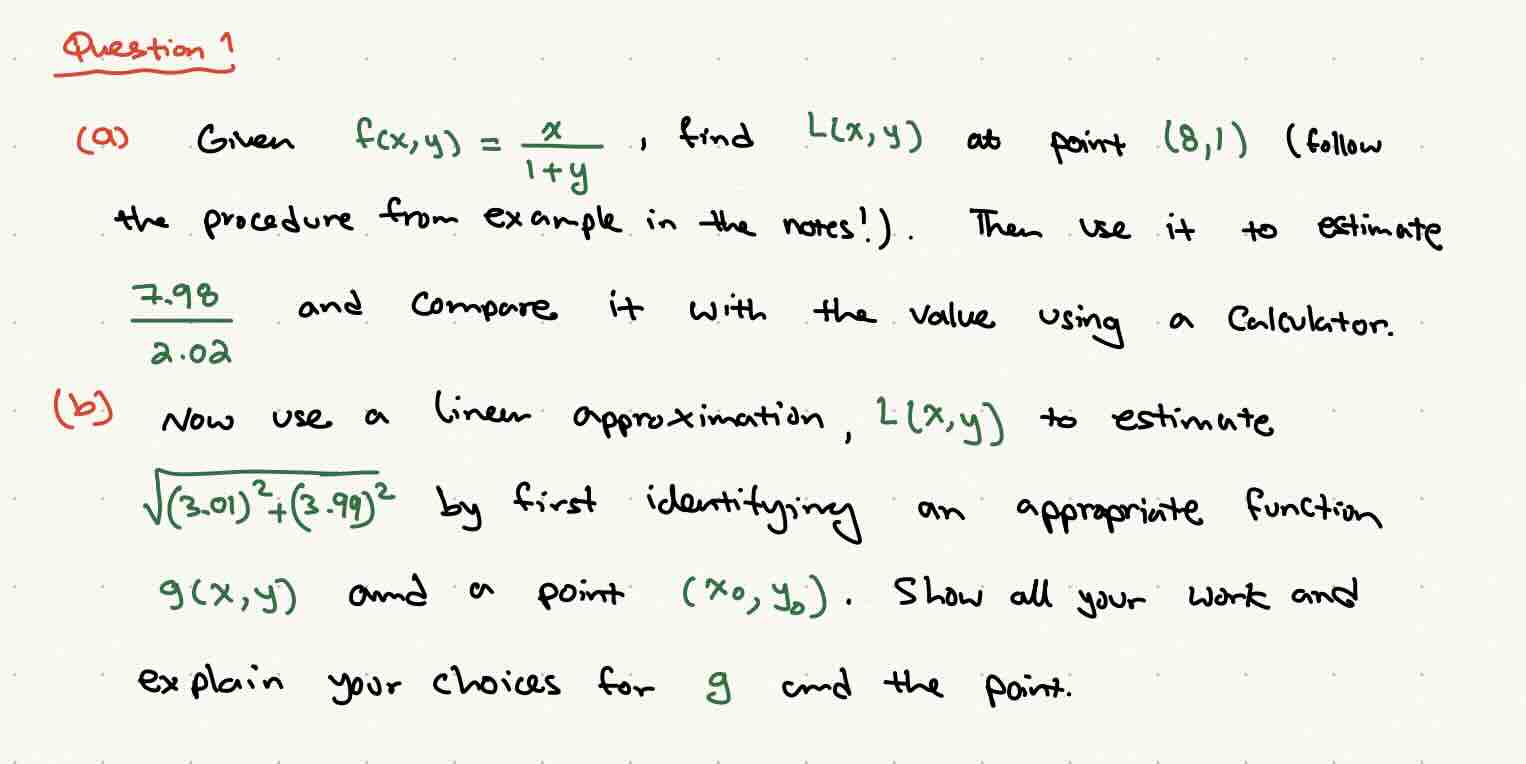 Question 1
(a) Given f(x,y) = x/(1+y), find L(x,y) at point (8,1) (follow
the procedure from example in the notes!). Then use it to estimate
7.98/2.02 and compare it with the value using a calculator.
(b) Now use a linear approximation, L(x,y) to estimate
√((3.01)²+(3.99)²) by first identifying an appropriate function
g(x,y) and a point (x₀,y₀). Show all your work and
explain your choices for g and the point.